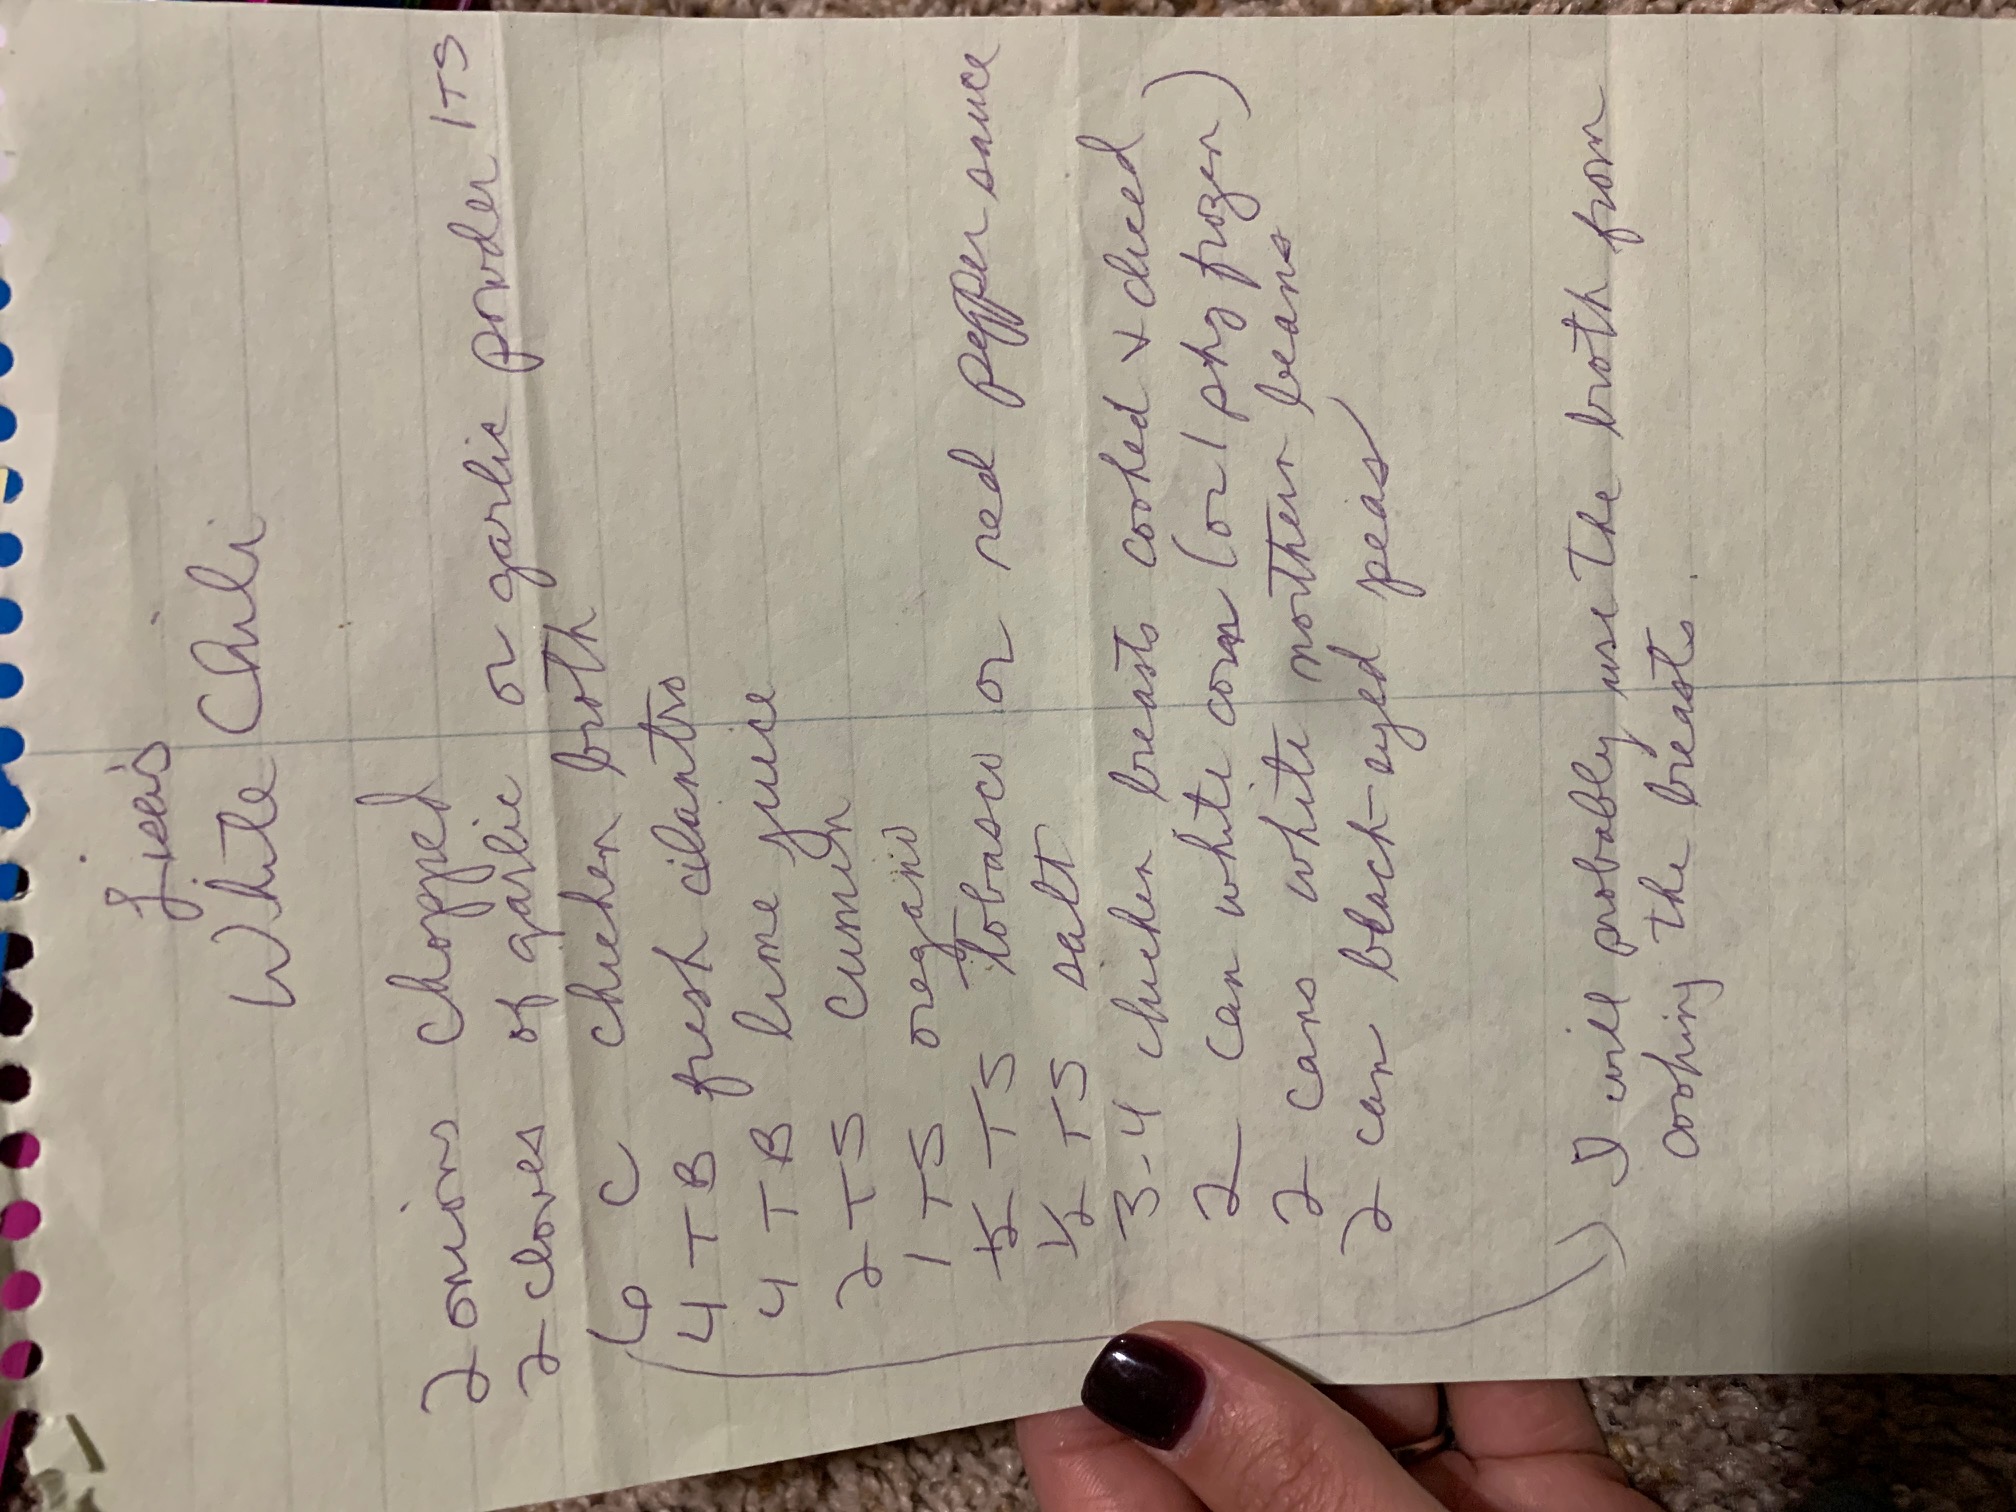 Lisa's
White Chili
2 onions chopped
2 cloves of garlic or garlic powder 1 TS
6 C chicken broth
4 TB fresh cilantro
4 TB lime juice
2 TS cumin
1 TS oregano
1/2 TS tobasco or red pepper sauce
1/2 TS salt
3-4 chicken breasts cooked & diced
2 can white corn (or 1 pkg frozen)
2 cans white northern beans
2 can black-eyed peas
I will probably use the broth from
cooking the breasts.